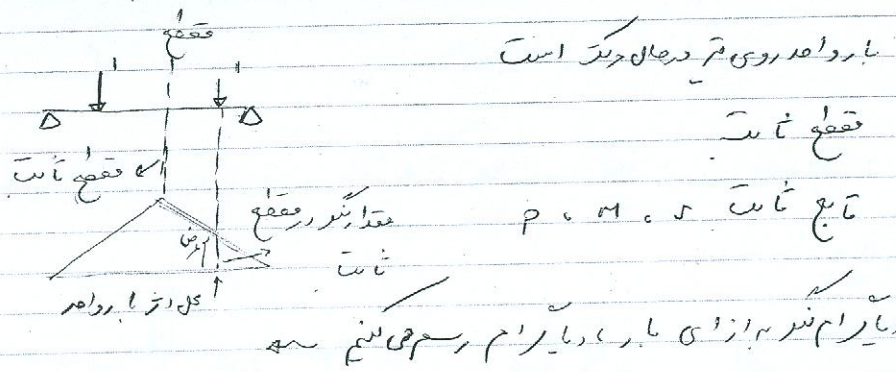 مقطع
بار واحد روی تیر در حال حرکت است
1
1
مقطع ثابت
مقطع ثابت
تابع ثابت M ، P
مقدار لنگر در مقطع
ثابت
محل اثر بار واحد
دیاگرام لنگر به ازای بار ، دیاگرام رسم می کنیم